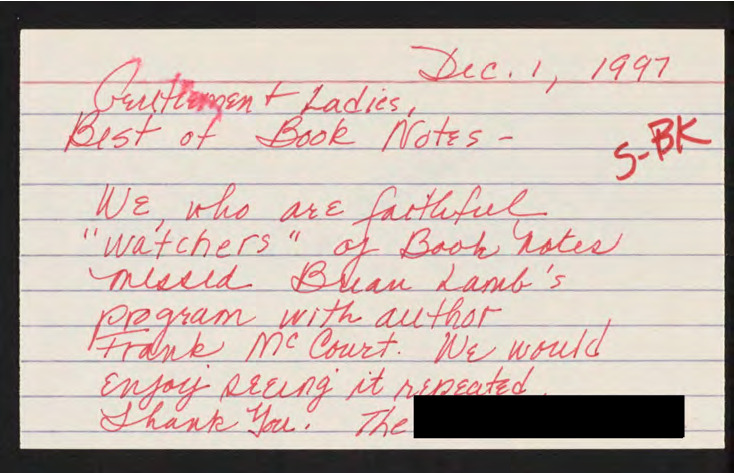 Dec. 1, 1997
Gentlemen + Ladies,
Best of Book Notes -
S-BK
We, who are faithful
"watchers" of Book Notes
missed Brian Lamb's
program with author
Frank McCourt. We would
enjoy seeing it repeated.
Thank You. The